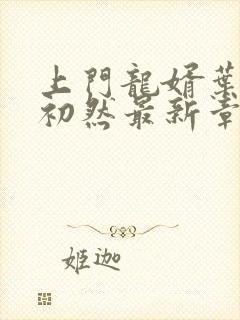 上門龍婿葉
初然最新章
姬迦